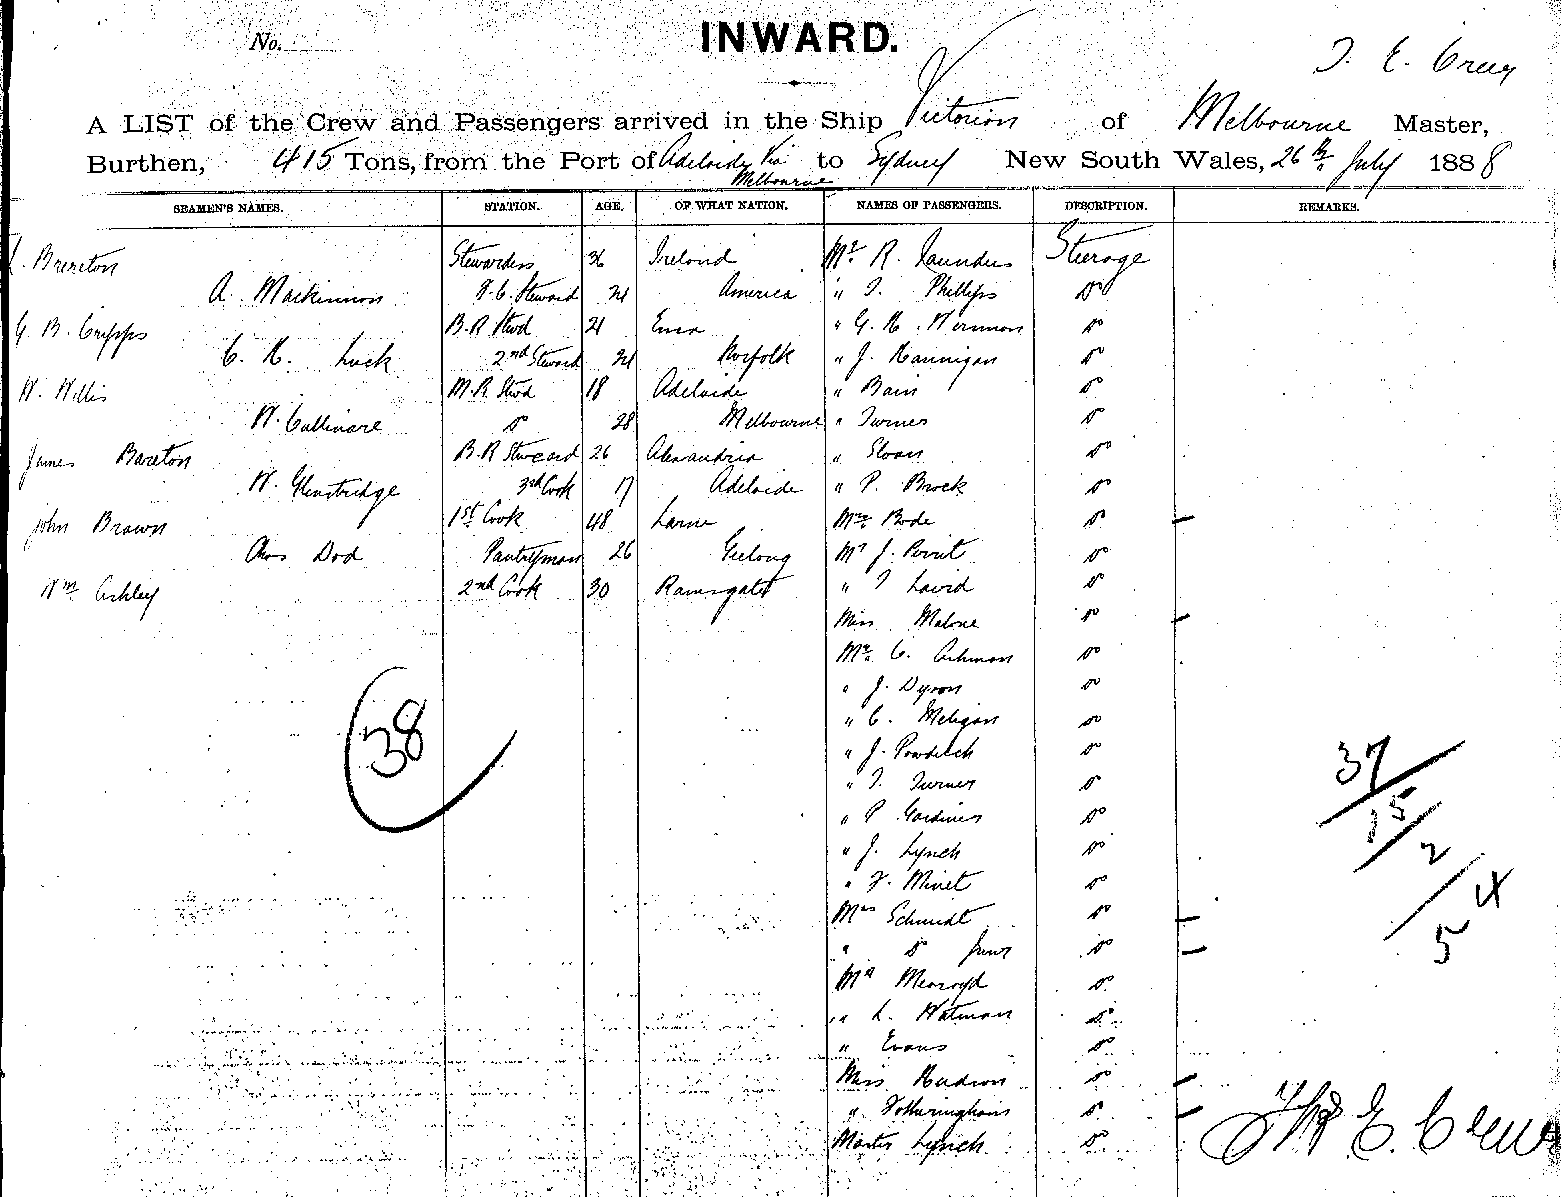 No.
INWARD.
T. E. Creer
A LIST of the Crew and Passengers arrived in the Ship Victorian of Melbourne Master,
Burthen, 415 Tons, from the Port of Adelaide Via Melbourne to Sydney New South Wales, 26th July 1888
SEAMEN'S NAMES. STATION. AGE. OF WHAT NATION. NAMES OF PASSENGERS. DESCRIPTION. REMARKS.
L. Brereton Stewardess 36 Ireland Mr. R. Saunders Steerage
A. Mackinnon F.C. Steward 24 America " T. Phillips Do
G. B. Cripps B.R Stwd 21 " G. H. Do
C. H. Luck 2nd Steward 24 Norfolk " J. Hannigan Do
W. Willis M.R. Stwd 18 Adelaide " Bain Do
W. Cullinare Do 28 Melbourne " Turner Do
James Bareton B.R Steward 26 Alexandria " Sloan Do
W. 3rd Cook 17 Adelaide " P. Brock Do
John Brown 1st Cook 48 Larne Mrs. Bode Do
Chas Dod Pantryman 26 Geelong Mr J. Do
Wm Ashley 2nd Cook 30 Ramsgate " T Laird Do
Miss Malone Do
Mr. C. Ashman Do
" J. Dyson Do
" C. Do
" J. Do
" T. Turner Do
" P Gardiner Do
" J. Lynch Do
" F. Minet Do
Mrs Schmidt Do
" Do Junr Do
Mr Do
" L. Watman Do
" Evans Do
Miss Hudson Do
" Fotheringham Do
Master Lynch Do
38
37/15/2/4
5
Thos E. Creer